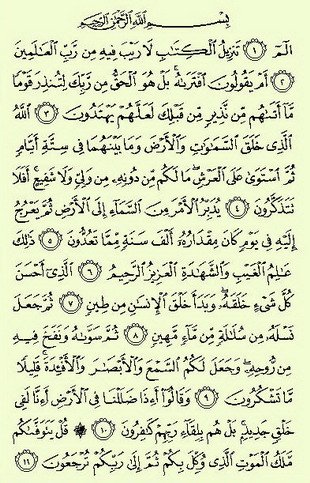 بِسْمِ اللَّهِ الرَّحْمَٰنِ الرَّحِيمِ
الٓمٓ ١ تَنزِيلُ ٱلْكِتَٰبِ لَا رَيْبَ فِيهِ مِن رَّبِّ ٱلْعَٰلَمِينَ
٢ أَمْ يَقُولُونَ ٱفْتَرَىٰهُ ۚ بَلْ هُوَ ٱلْحَقُّ مِن رَّبِّكَ لِتُنذِرَ قَوْمًا
مَّآ أَتَىٰهُم مِّن نَّذِيرٍ مِّن قَبْلِكَ لَعَلَّهُمْ يَهْتَدُونَ ٣ ٱللَّهُ
ٱلَّذِى خَلَقَ ٱلسَّمَٰوَٰتِ وَٱلْأَرْضَ وَمَا بَيْنَهُمَا فِى سِتَّةِ أَيَّامٍ
ثُمَّ ٱسْتَوَىٰ عَلَى ٱلْعَرْشِ ۖ مَا لَكُم مِّن دُونِهِۦ مِن وَلِىٍّ وَلَا شَفِيعٍ ۚ أَفَلَا
تَتَذَكَّرُونَ ٤ يُدَبِّرُ ٱلْأَمْرَ مِنَ ٱلسَّمَآءِ إِلَى ٱلْأَرْضِ ثُمَّ يَعْرُجُ
إِلَيْهِ فِى يَوْمٍ كَانَ مِقْدَارُهُۥٓ أَلْفَ سَنَةٍ مِّمَّا تَعُدُّونَ ٥ ذَٰلِكَ
عَٰلِمُ ٱلْغَيْبِ وَٱلشَّهَٰدَةِ ٱلْعَزِيزُ ٱلرَّحِيمُ ٦ ٱلَّذِىٓ أَحْسَنَ
كُلَّ شَىْءٍ خَلَقَهُۥ ۖ وَبَدَأَ خَلْقَ ٱلْإِنسَٰنِ مِن طِينٍ ٧ ثُمَّ جَعَلَ
نَسْلَهُۥ مِن سُلَٰلَةٍ مِّن مَّآءٍ مَّهِينٍ ٨ ثُمَّ سَوَّىٰهُ وَنَفَخَ فِيهِ
مِن رُّوحِهِۦ ۖ وَجَعَلَ لَكُمُ ٱلسَّمْعَ وَٱلْأَبْصَٰرَ وَٱلْأَفْـِٔدَةَ ۚ قَلِيلًا
مَّا تَشْكُرُونَ ٩ وَقَالُوٓا۟ أَءِذَا ضَلَلْنَا فِى ٱلْأَرْضِ أَءِنَّا لَفِى
خَلْقٍ جَدِيدٍۭ ۚ بَلْ هُم بِلِقَآءِ رَبِّهِمْ كَٰفِرُونَ ١٠ ۞ قُلْ يَتَوَفَّىٰكُم
مَّلَكُ ٱلْمَوْتِ ٱلَّذِى وُكِّلَ بِكُمْ ثُمَّ إِلَىٰ رَبِّكُمْ تُرْجَعُونَ ١١